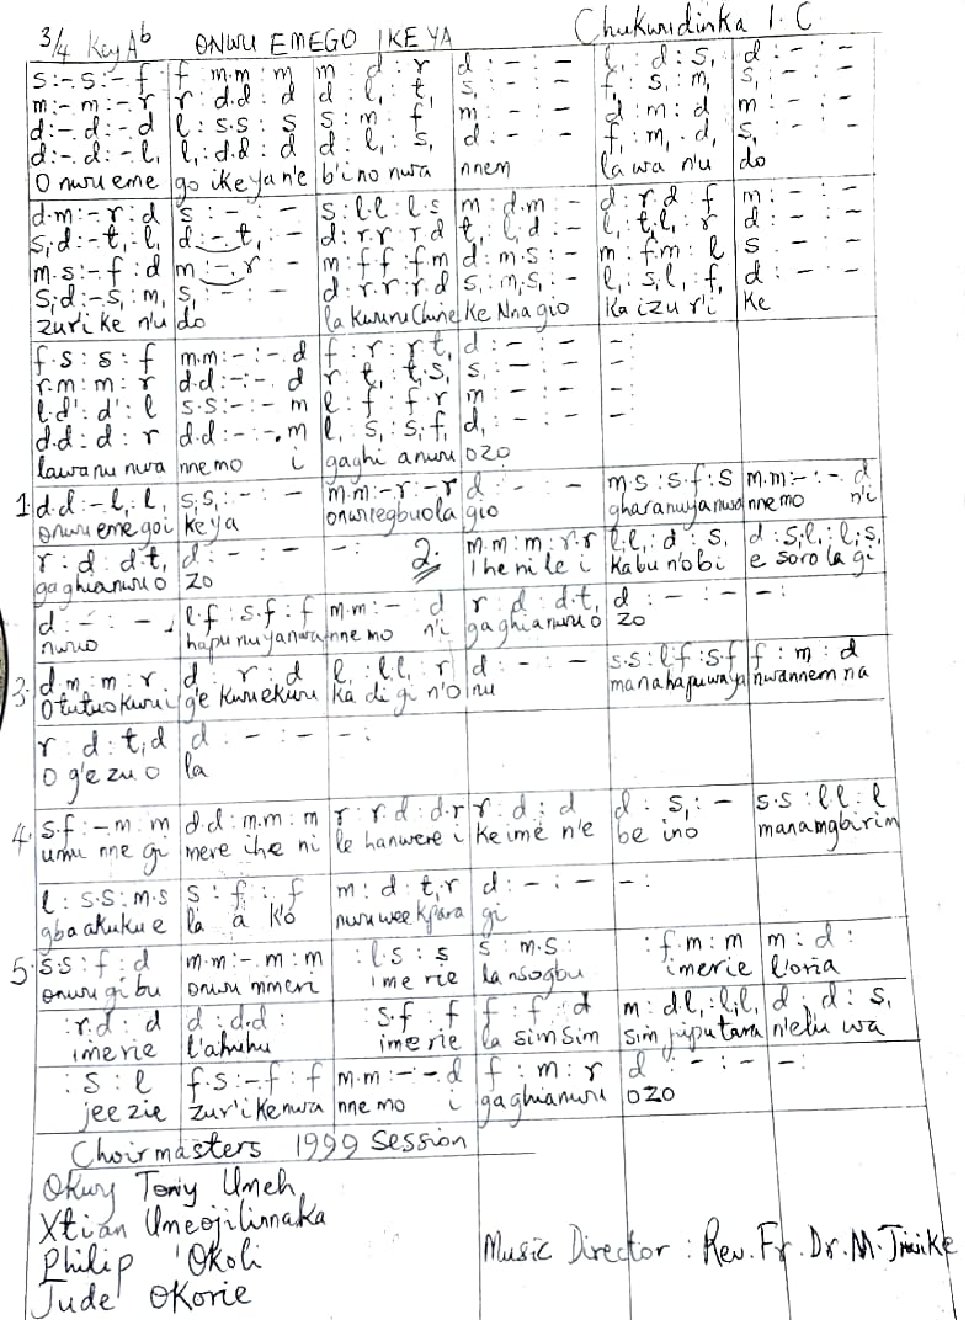 3/4 Key Ab ONWU EMEGO IKE YA Chukwudinka I. C.
s:-.s:-.f f:m.m:m m:d:r d:-:- l,:d:s, d:-:-
m:-.m:-.r r:d.d:d d:l,:t, s,:-:- f,:s,:m, s,:-:-
d:-.d:-.d l:s.s:s s:m:f m:-:- d:m:d m:-:-
d:-.d:-.l, l,:d.d:d d:l,:s, d:-:- f,:m,:d, s,:-:-
O nwu eme go ike ya n'e b'i no nwa nnem la wa n'u do
d.m:-.r:d s:-:- s:l.l:l.s m:d.m:- d:r.d:f m:-:-
s,.d:-.t,:l, d:-.t,:- d:r.r:r.d t,:l,.d:- l,:t,.l,:r d:-:-
m.s:-.f:d m:-.r:- m:f.f:f.m d:m.s:- m:f.m:l s:-:-
s,.d:-.s,:m, s,:-:- d:r.r:r.d s,:m,.s,:- l,:s,.l,:f, d:-:-
zur'i ke n'u do la Kwuru Chine ke Nna gio ka izu r'i ke
f.s:s:f m.m:-:-.d f:r:r.t, d:-:- -:
r.m:m:r d.d:-:-.d r:t,:t,.s, s,:-:- -:
l.d':d':l s.s:-:-.m l:f:f.r m:-:- -:
d.d:d:r d.d:-:-.m l,:s,:s,.f, d,:-:- -:
lawa nu nwa nne mo i gaghi anwu ozo
1 d.d:-.l,:l, s,.s,:-:- m.m:-.r:-.r d:-:- m.s:s.f:s m.m:-:-.d
onwu eme goi ke ya onwu egbuola gio gharanuya nwa nne mo n'i
r:d:d.t, d:-:- -: 2. m.m:m:r.r l,.l,:d:s, d:s,.l,:l,.s,
ga ghianwu o zo Ihe ni le i kabu n'obi e soro la gi
d:-:- l.f:s.f:f m.m:-:d r:d:d.t, d:-:- -:
nwuo hapu nu ya nwa nne mo n'i ga ghianwu o zo
3. d.m:m:r d:r:d l,:l,.l,:r d:-:- s.s:l.f:s.f f:m:d
O tutuo kwu i g'e kwu ekwu ka di gi n'o nu mana hapuwa ya nwannem na
r:d:t,.d d:-:- -:
O g'e zu o la
4. s.f:-.m:m d.d:m.m:m r:r.d:d.r r:d:d d:s,:- s.s:l.l:l
umu nne gi mere ihe ni le hanwere i ke ime n'e be ino mana mgbirim
l:s.s:m.s s:f:f m:d:t,.r d:-:- -:
gba akuku e la a k'o nwuwee kpara gi
5. s.s:f:d m.m:-.m:m :l.s:s s:m.s: :f.m:m m:d:
onwu gi bu onwu mmeri ime rie la nsogbu imerie l'oria
:r.d:d d:d.d: :s.f:f f:f:d m:d.l,:l,.l, d:d:s,
imerie l'ahuhu ime rie la simsim sim piputara n'elu wa
:s:l f.s:-.f:f m.m:-:-.d f:m:r d:-:- -:
jee zie zur'ike nwa nne mo i ga ghianwu ozo
Choirmasters 1999 Session
Okwy Tony Umeh
Xtian Umeojilinnaka
Philip Okoli Music Director : Rev. Fr. Dr. M. Jiwike
Jude Okorie